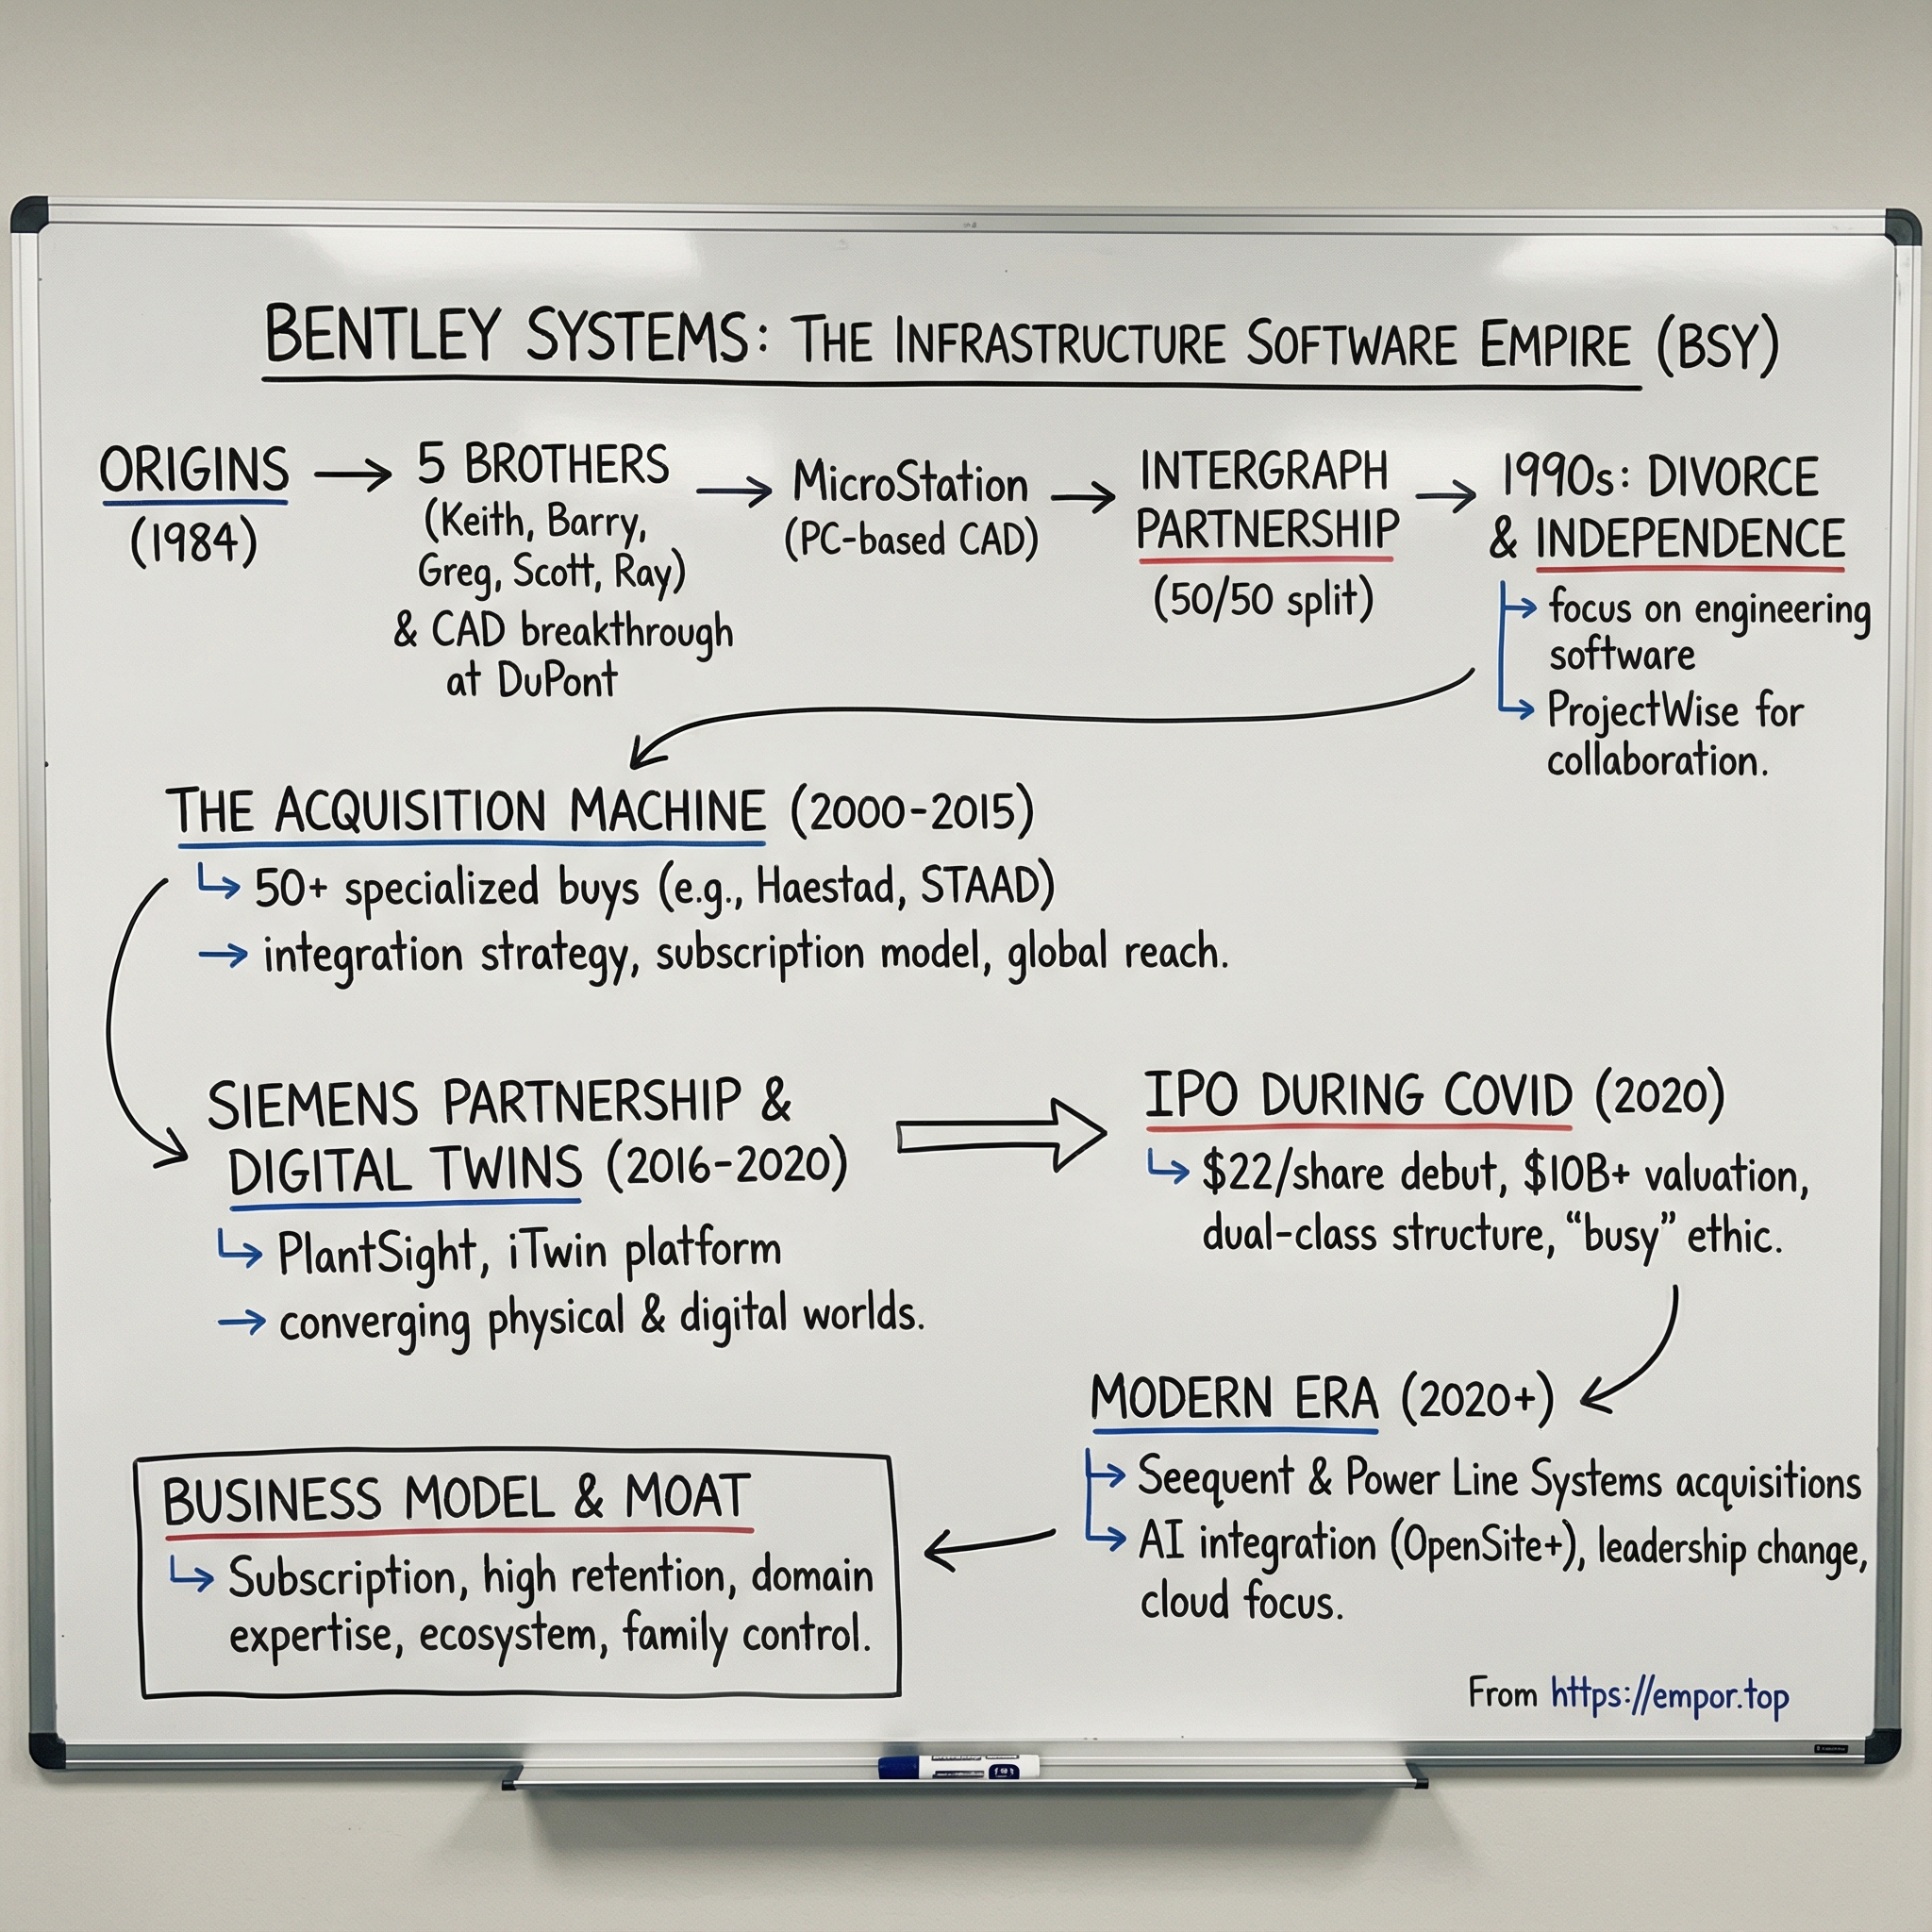 BENTLEY SYSTEMS: THE INFRASTRUCTURE SOFTWARE EMPIRE (BSY)
ORIGINS
(1984)
5 BROTHERS
(Keith, Barry,
Greg, Scott, Ray)
& CAD breakthrough
at DuPont
MicroStation
(PC-based CAD)
INTERGRAPH
PARTNERSHIP
(50/50 split)
1990s: DIVORCE
& INDEPENDENCE
focus on engineering
software
ProjectWise for
collaboration.
THE ACQUISITION MACHINE (2000-2015)
50+ specialized buys (e.g., Haestad, STAAD)
integration strategy, subscription model, global reach.
SIEMENS PARTNERSHIP &
DIGITAL TWINS (2016-2020)
PlantSight, iTwin platform
converging physical & digital worlds.
IPO DURING COVID (2020)
$22/share debut, $10B+ valuation,
dual-class structure, "busy" ethic.
MODERN ERA (2020+)
Seequent & Power Line Systems acquisitions
AI integration (OpenSite+), leadership change,
cloud focus.
BUSINESS MODEL & MOAT
Subscription, high retention, domain
expertise, ecosystem, family control.
From https://empor.top